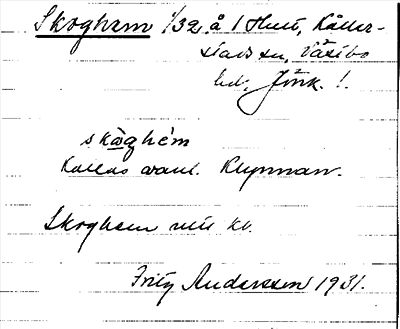 Skoghem 1/32 å 1 Hult, Kåller-
stads sn, Västbo
hd, Jönk. l.
skòghém
Kallas vanl. Klynnan.
Skoghem
Fritz Andersson 1931.